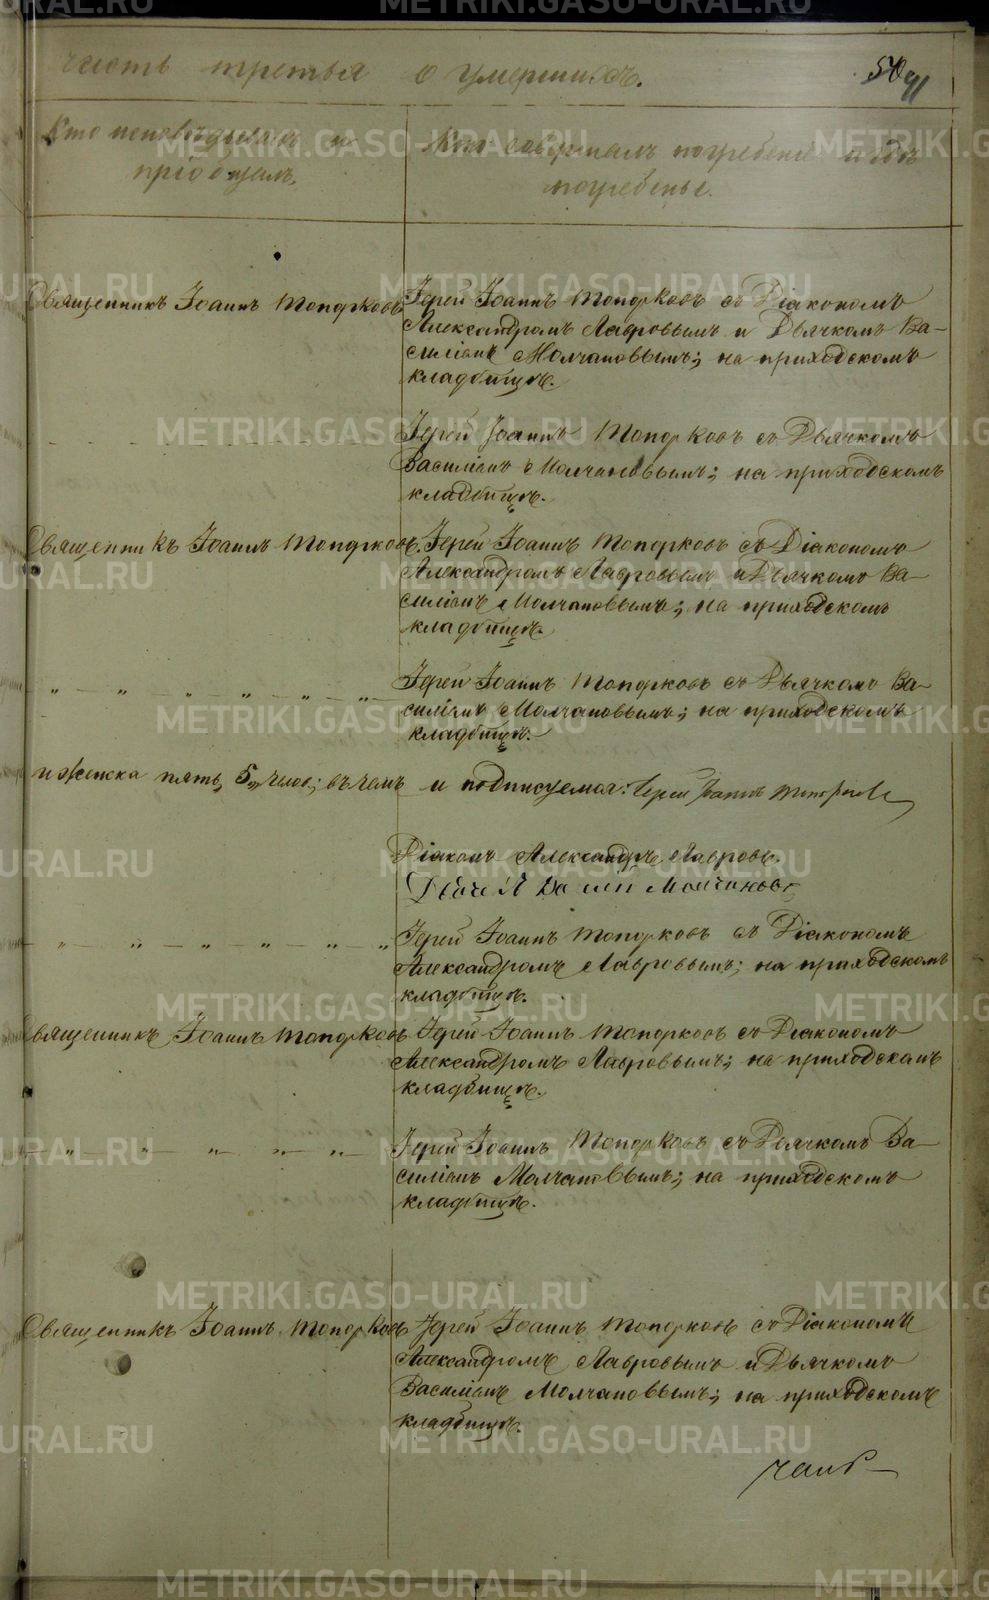 часть третья о умершихъ.
540
91
Кто исповѣдывалъ и
пріобщалъ.
Кто совершалъ погребеніе и гдѣ
погребены.
Священникъ Іоаннъ Топорковъ
Іерей Іоаннъ Топорковъ съ Діакономъ
Александромъ Лавровымъ и Дьячкомъ Ва-
силіемъ Молчановымъ; на приходскомъ
кладбищѣ.
Іерей Іоаннъ Топорковъ съ Дьячкомъ
Василіемъ Молчановымъ; на приходскомъ
кладбищѣ.
Священникъ Іоаннъ Топорковъ.
Іерей Іоаннъ Топорковъ съ Діакономъ
Александромъ Лавровымъ и Дьячкомъ Ва-
силіемъ Молчановымъ; на приходскомъ
кладбищѣ.
" " " " " "
Іерей Іоаннъ Топорковъ съ Дьячкомъ Ва-
силіемъ Молчановымъ; на приходскомъ
кладбищѣ.
и женска пять, 5, челов; въ чемъ и подписуемся: Іерей Іоаннъ Топорковъ
Діаконъ Александръ Лавровъ.
Дьячёк Василій Молчановъ
" " " " " "
Іерей Іоаннъ Топорковъ съ Діакономъ
Александромъ Лавровымъ; на приходскомъ
кладбищѣ.
Священникъ Іоаннъ Топорковъ
Іерей Іоаннъ Топорковъ съ Діакономъ
Александромъ Лавровымъ; на приходскомъ
кладбищѣ.
" " " " "
Іерей Іоаннъ Топорковъ съ Дьячкомъ Ва-
силіемъ Молчановымъ; на приходскомъ
кладбищѣ.
Священникъ Іоаннъ Топорковъ
Іерей Іоаннъ Топорковъ съ Діакономъ
Александромъ Лавровымъ и Дьячкомъ
Василіемъ Молчановымъ; на приходскомъ
кладбищѣ.
METRIKI.GASO-URAL.RU